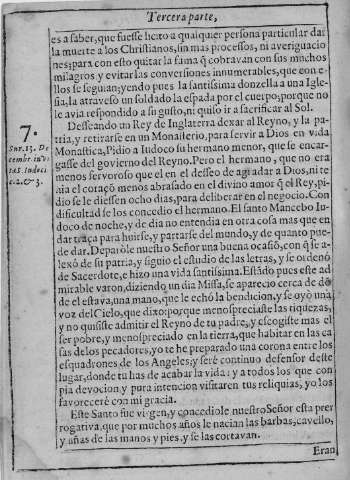 Tercera parte,
es a saber, que fuesse licito a qualquier persona particular dar
la muerte a los Christianos, sin mas processos, ni averiguacio
nes; para con esto quitar la fama q̃ cobravan con sus muchos
milagros y evitar las conversiones innumerables, que con e-
llos se seguian; yendo pues la santissima donzella a una Igle-
sia, la atravesò un soldado la espada por el cuerpo; porque no
le avia respondido a su gusto, ni quiso ir a sacrificar al Sol.
Desseando un Rey de Inglaterra dexar al Reyno, y la pa-
tria, y retirarse en un Monasterio, para servir a Dios en vida
Monastica, Pidio a Iudoco su hermano menor, que se encar-
gasse del govierno del Reyno. Pero el hermano, que no era
menos servoroso que el en el desseo de agradar a Dios, ni te
nia el coraçõ menos abrasado en el divino amor q̃ el Rey, pi-
dio se le diessen ocho dias, para deliberar en el negocio. Con
dificultad se los concedio el hermano. El santo Mancebo Iu-
doco de noche, y de dia no entendia en otra cosa mas que en
dar traça para huirse, y partarse del mundo, y de quanto pue-
de dar. Deparòle nuestro Señor una buena ocasiõ, con q̃ se a-
lexò de su patria, y siguio el estudio de las letras, y se ordenò
de Sacerdote, e hizo una vida santissima. Estãdo pues este ad
mirable varon, diziendo un dia Missa, se aparecio cerca de dõ
de el estava, una mano, que le echò la bendicion, y se oyò una
voz del Cielo, que dixo: porque menospreciaste las riquezas,
y no quisiste admitir el Reyno de tu padre, y escogiste mas el
ser pobre, y menospreciado en la tierra, que habitar en las ca
sas delos pecadores, yo te he preparado una corona entre los
esquadrones de los Angeles; y serè continuo defensor deste
lugar, donde tu has de acabar la vida: y a todos los que con
pia devocion, y pura intencion visitaren tus reliquias, yo los
favorecerè con mi gracia.
Este Santo fue virgen, y concediole nuestro Señor esta prer
rogativa, que por muchos años le nacian las barbas, cavello,
y uñas de las manos y pies, y se las cortavan.
Eran
7.
Sur. 13. De
cembr. in vi
ta S. Iudoci
c. 2. & 3.